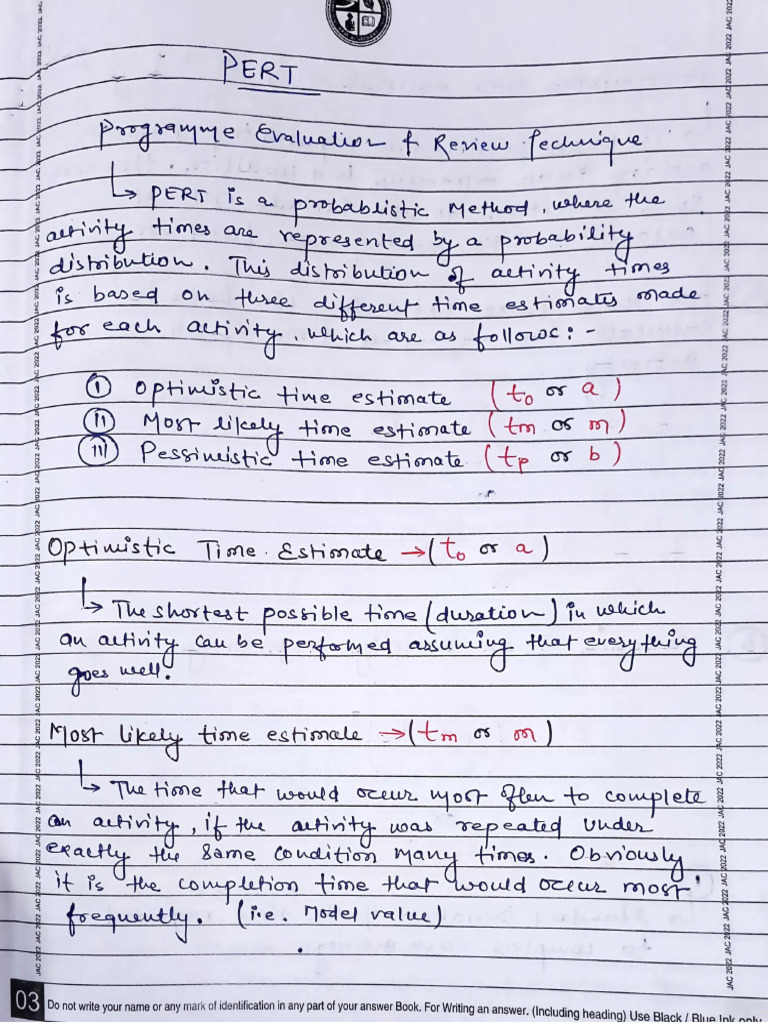 PERT
Programme Evaluation & Review Technique
↳ PERT is a probablistic Method, where the
activity times are represented by a probability
distribution. This distribution of activity times
is based on three different time estimates made
for each activity, which are as follows: -
(i) Optimistic time estimate (to or a)
(ii) Most likely time estimate (tm or m)
(iii) Pessimistic time estimate (tp or b)
Optimistic Time Estimate → (to or a)
↳ The shortest possible time (duration) in which
an activity can be performed assuming that everything
goes well.
Most likely time estimate → (tm or m)
↳ The time that would occur most often to complete
an activity, if the activity was repeated under
exactly the same condition many times. Obviously
it is the completion time that would occur most
frequently. (i.e. Model value)
03 Do not write your name or any mark of identification in any part of your answer Book. For Writing an answer. (Including heading) Use Black / Blue Ink only
JAC 2022 JAC 2022 JAC 2022 JAC 2022 JAC 2022 JAC 2022 JAC 2022 JAC 2022